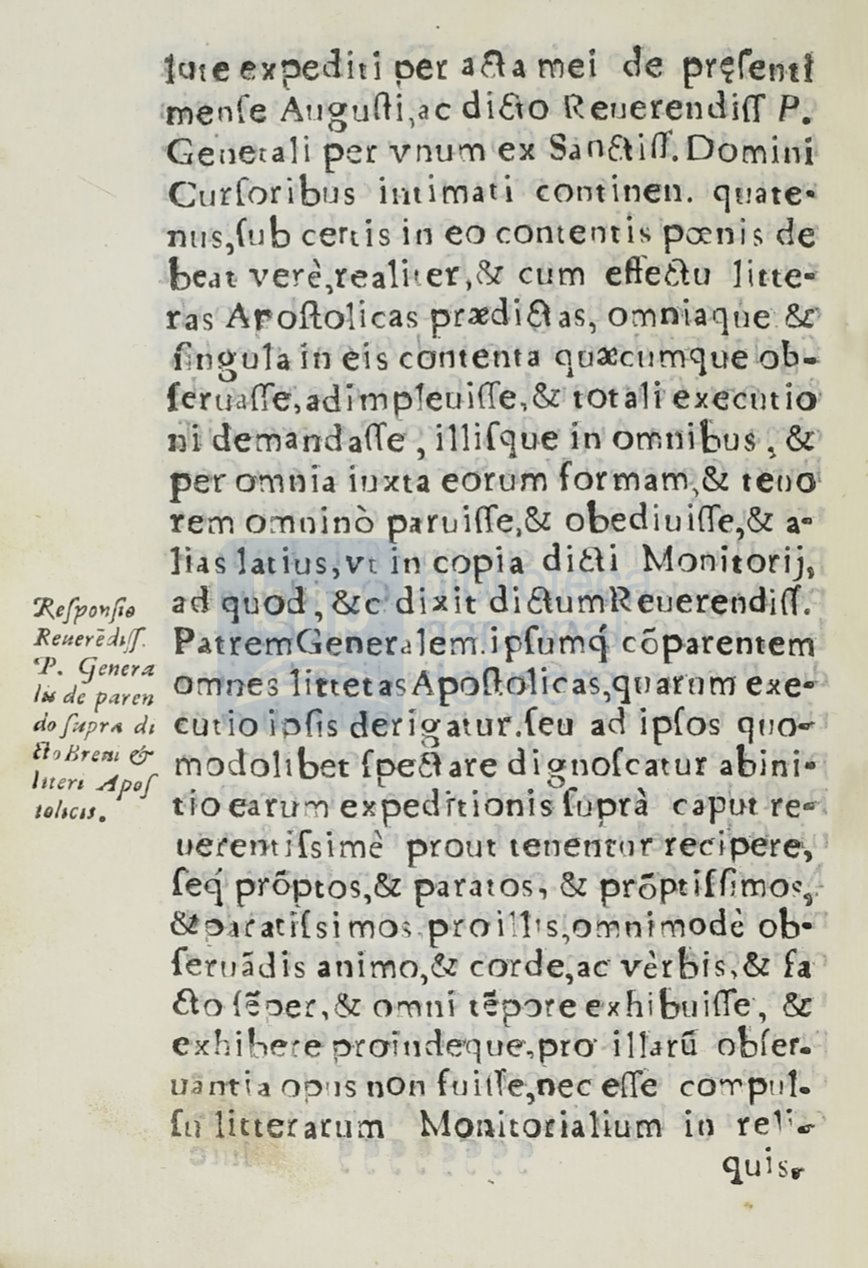 lute expediti per acta mei de pręſenti
menſe Auguſti,ac dicto Reuerendiſſ P.
Generali per vnum ex Sanctiſſ. Domini
Curſoribus intimati continen. quate-
nus,ſub certis in eo contentis pœnis de
beat verè,realiter,& cum effectu litte-
ras Apoſtolicas prædictas, omniaque &
ſingula in eis contenta quæcumque ob-
ſeruaſſe,adimpleuiſſe,& totali executio
ni demandaſſe, illiſque in omnibus, &
per omnia iuxta eorum formam,& teno
rem omninò paruiſſe,& obediuiſſe,& a-
lias latius,vt in copia dicti Monitorij,
ad quod, &c dixit dictumReuerendiſſ.
PatremGeneralem.ipſumq́ cōparentem
omnes littetasApoſtolicas,quarum exe-
cutio ipſis derigatur.ſeu ad ipſos quo-
modolibet ſpectare dignoſcatur abini-
tio earum expeditionis ſuprà caput re-
uerentiſsimè prout tenentur recipere,
ſeq́ prōptos,& paratos, & prōptiſſimos,
&paratiſsimos pro illis,omnimodè ob-
ſeruādis animo,& corde,ac vèrbis,& fa
cto ſēper,& omni tēpore exhibuiſſe, &
exhibere proindeque,pro illarū obſer-
uantia opus non fuiſſe,nec eſſe compul-
ſu litterarum Monitorialium in reli-
quis,
Reſponſio
Reuerēdiſſ.
P. Genera
lis de paren
do ſupra di
cto Breui &
literi Apoſ
tolicis.